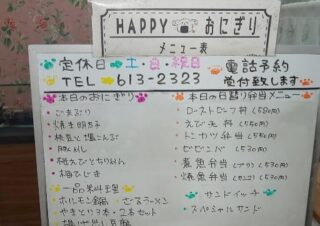 HAPPY おにぎり
メニュー表
定休日 土・日・祝日
電話予約
TEL 613-2323
受付致します
本日のおにぎり
ごまぶり
焼き明太子
枝豆と塩こんぶ
梅ひじき
一品料理
ホルモン鍋 ざるラーメン
やきとり3本・2本セット
揚げ出し豆腐
本日の日替り弁当メニュー
ローストビーフ丼 (580円)
えび天丼 (550円)
トンカツ弁当 (550円)
ビビンバ (530円)
煮魚弁当 (ブリ) (530円)
焼魚弁当 (530円)
サンドイッチ
スペシャルサンド